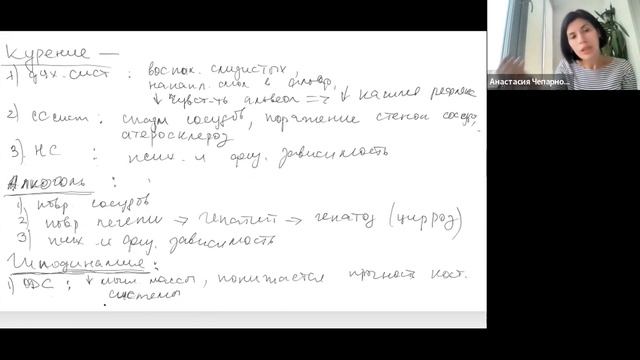 Курение —
1) дых. сист : воспал. слизистых,
накапл. смол в альвео,
↓ чувст-ть альвеол => ↓ кашлев рефлекс
2) СС сист : спазм сосудов, поражение стенок сосуд,
атеросклероз
3) НС : псих. и физ. зависимость
Алкоголь :
1) повр сосудов
2) повр печени → гепатит → гепатоз (цирроз)
3) псих. и физ. зависимость
Гиподинамия :
1) ОДС : ↓ мыш массы, понижается прочность кост.
системы
Анастасия Чепарно...